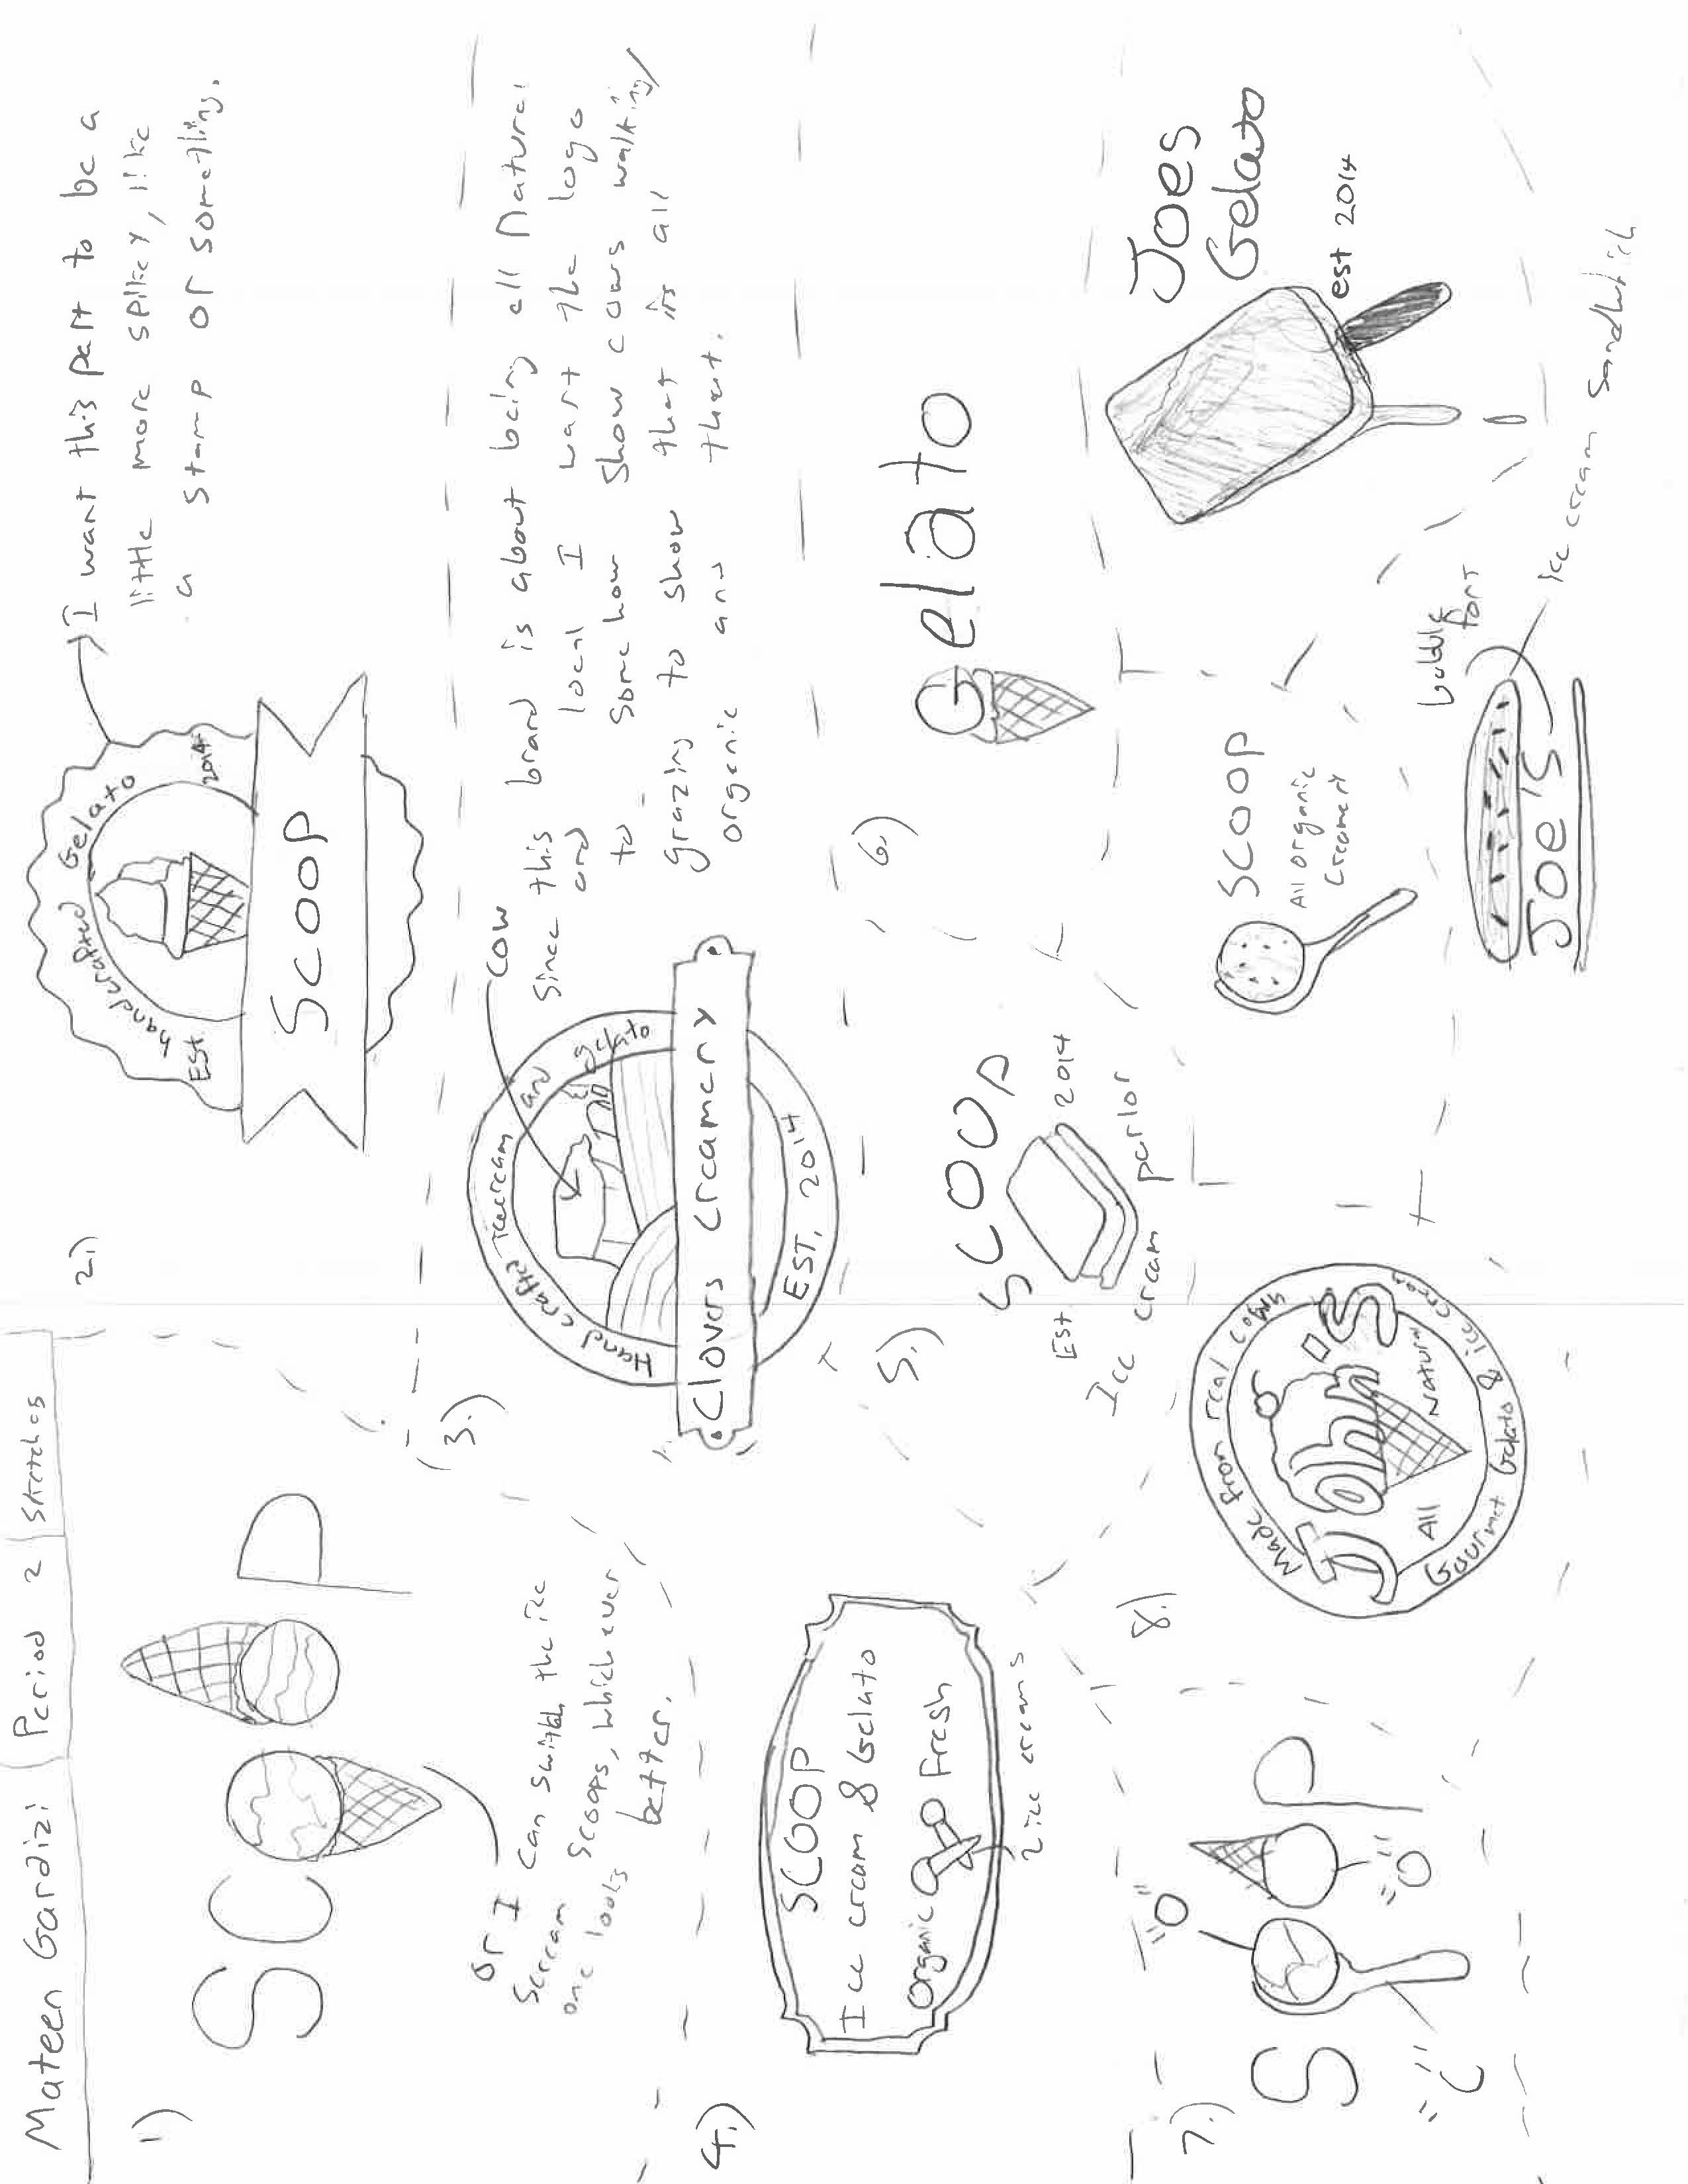 Mateen Gardizi Period 2 Sketches
1.)
SC P
Or I can switch the ice
Scream scoops, which ever
one looks better.
2.)
Handcrafted Gelato
EST. 2014
SCOOP
I want this part to be a
little more spikey, like
a stamp or something.
3.)
Hand crafted Icecream and gelato
Clovers creamery
EST. 2014
cow
Since this brand is about being all Natural
and local I want the logo
to somehow show cows walking/
grazing to show that is all
organic and that.
4.)
SCOOP
Ice cream & Gelato
Organic Fresh
2 ice creams
5.)
SCOOP
Est 2014
Ice cream parlor
6.)
Gelato
7.)
S P
"C"
"O"
"O"
8.)
Made from real cows
John's
All Natural
Gourmet Gelato & ice cream
SCOOP
All organic
Creamery
Joes
Gelato
est 2014
JOE'S
bubble
font
ice cream sandwich